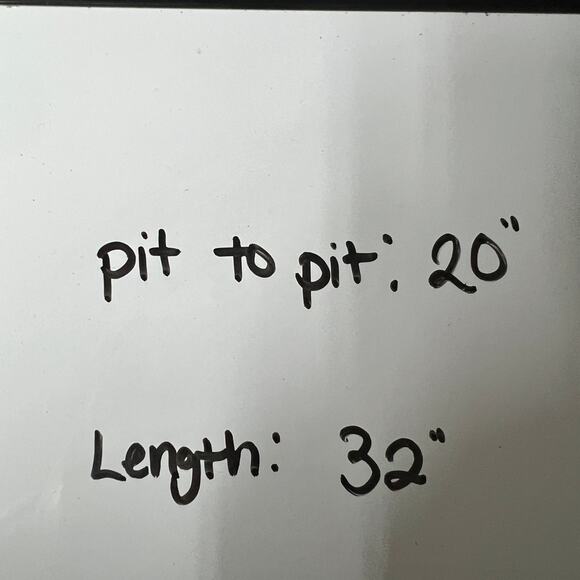 pit to pit: 20"
Length: 32"